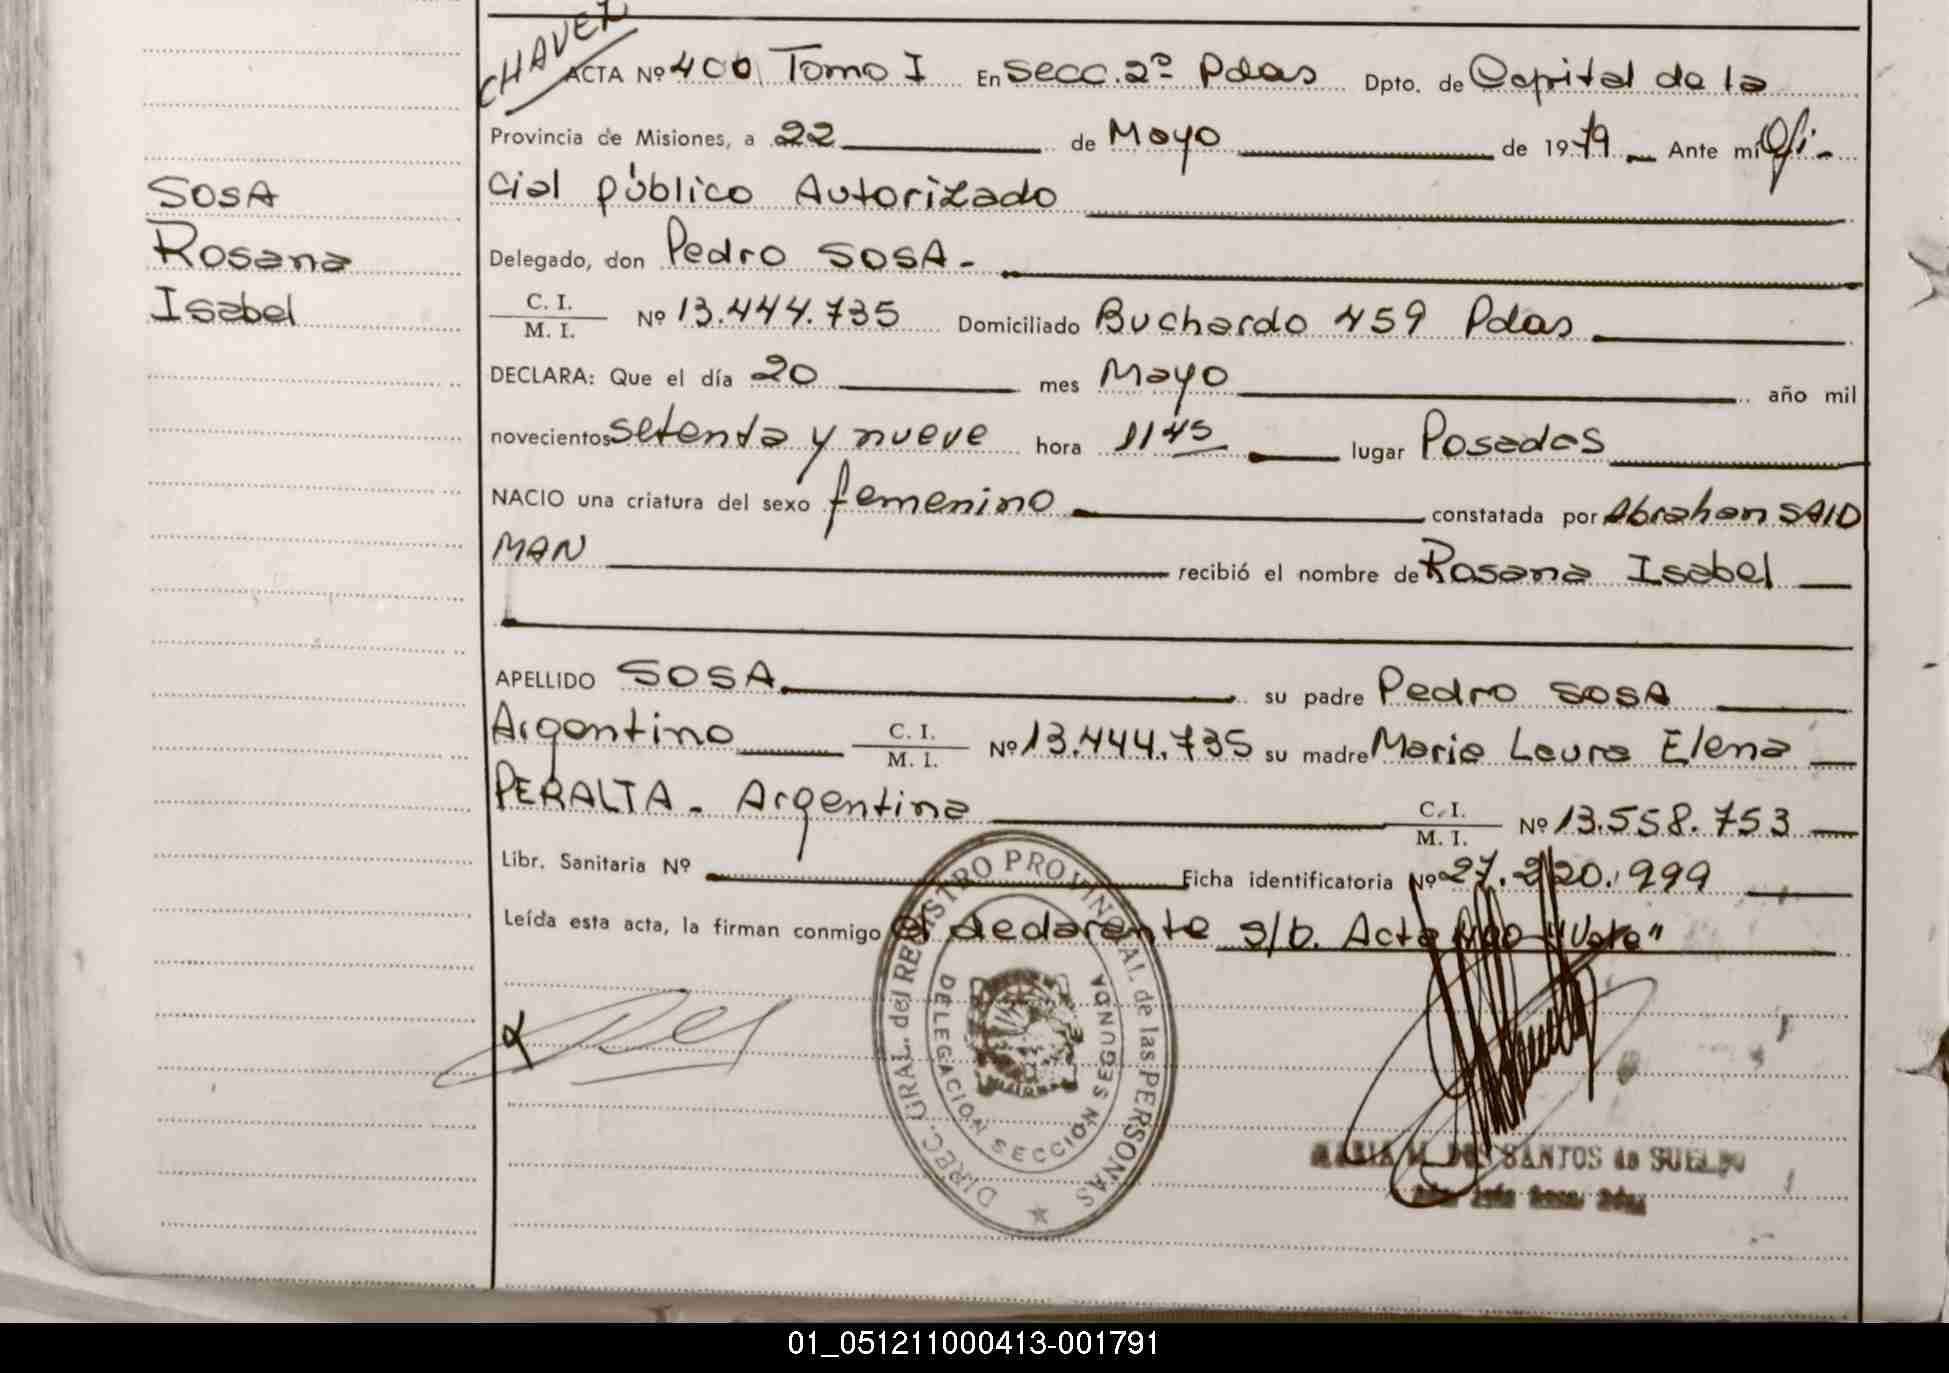 CHAVEZ
ACTA Nº 400 Tomo I En Secc. 2º Pdas Dpto. de Capital de la
Provincia de Misiones, a 22 de Mayo de 1979 Ante mí Ofi-
cial público Autorizado
Delegado, don Pedro SOSA-
C. I.
M. I. Nº 13.444.735 Domiciliado Buchardo 459 Pdas
DECLARA: Que el día 20 mes Mayo año mil
novecientos setenta y nueve hora 1145 lugar Posadas
NACIO una criatura del sexo femenino constatada por Abrahan SAID
MAN recibió el nombre de Rosana Isabel
APELLIDO SOSA su padre Pedro SOSA
Argentino C. I.
M. I. Nº 13.444.735 su madre Maria Laura Elena
PERALTA - Argentina C. I.
M. I. Nº 13.558.753
Libr. Sanitaria Nº Ficha identificatoria Nº 27.220.999
Leída esta acta, la firman conmigo el declarante s/b. Acta "Vale"
SOSA
Rosana
Isabel
DIREC. GRAL. del REGISTRO PROVINCIAL de las PERSONAS
DELEGACION SECCION SEGUNDA
MARIA M. DOS SANTOS de SUELDO
01_051211000413-001791